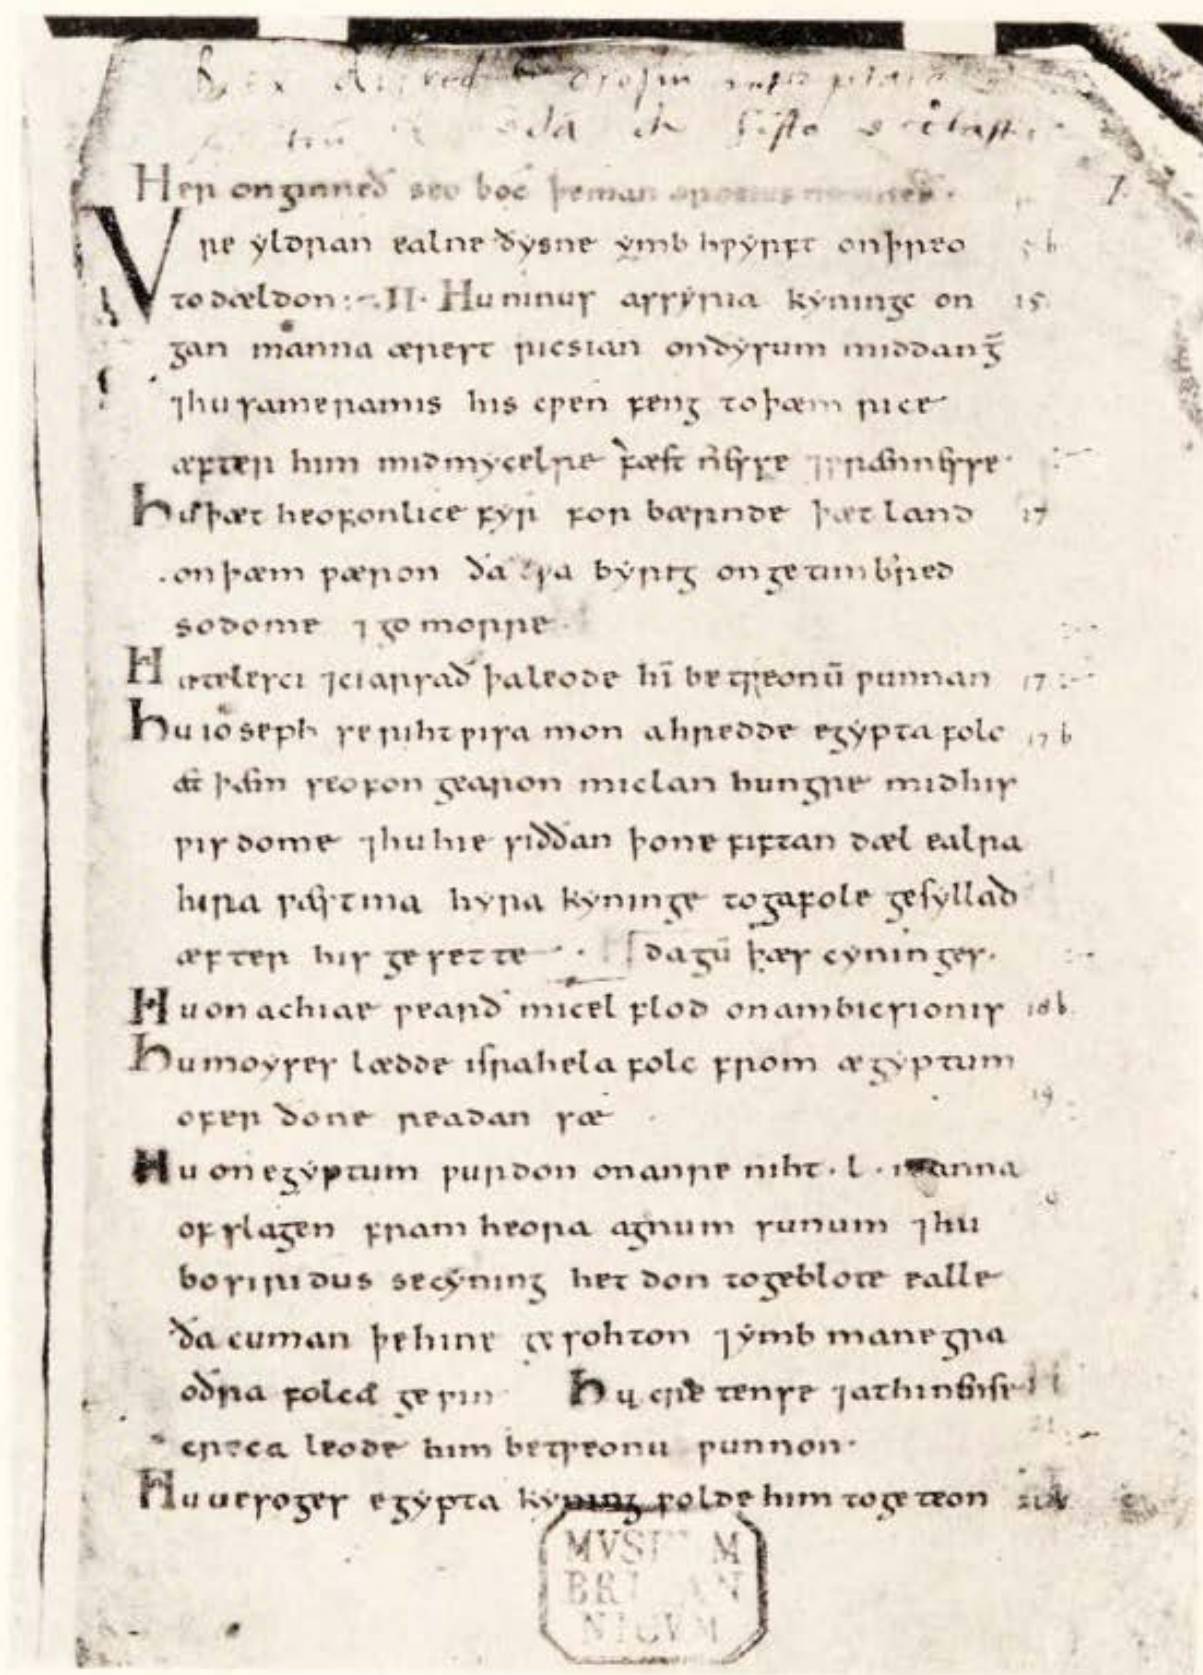 Her onginneð seo boc þeman orosius nemneð.
Vre yldran ealne ðysne ymb hƿyrft onþreo 5 b
todældon :~ II · Hu ninus assyria kyningc on 15
gan manna ærest ricsian onðysum middang̅
⁊hu sameramis his cƿen feng toþæm rice
æfter him midmycelre
þæt heofonlice fyr for bærnde þæt land 17
onþæm ƿæron ða byrig ongetimbred
sodome ⁊ gomorre ·
þaleode hī betƿeonū ƿunnan 17
Hu ioseph serihtƿisa mon ahredde egypta folc 17 b
æt þæm seofon geara miclan hungre midhis
ƿisdome ⁊hu hie siððan þone fiftan dæl ealra
hira ƿæstma hyra kyninge togafole gesyllað
æfter his gesette dagū þæs cyninges.
Hu on achiae ƿearð micel flod onambicsionis 18 b
Hu moyses lædde israhela folc from ægyptum
ofer ðone readan sæ 19
Hu onegyptum ƿurdon onanre niht · l · manna
ofslagen fram heora agnum sunum ⁊hu
bosiridus secyning het don togeblote ealle
ða cuman þehine gesohton ⁊ymb manegra
oðra folca geƿin Hu cretense ⁊athiniense
creca leode him betƿeonu ƿunnon ·
Hu uesoges egypta kyning ƿolde him togeteon
MVSEVM
BRITAN
NICVM